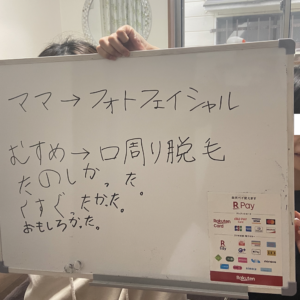 ママ→フォトフェイシャル
むすめ→口周り脱毛
たのしかった。
くすぐたかた。
おもしろかた。
R Pay
Rakuten Card